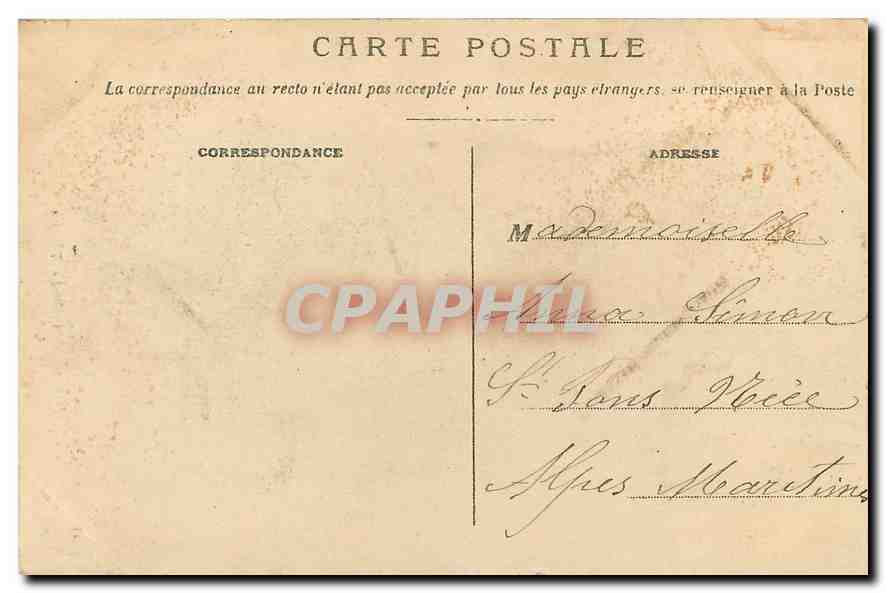 CARTE POSTALE
La correspondance au recto n'étant pas acceptée par tous les pays étrangers, se renseigner à la Poste
CORRESPONDANCE
ADRESSE
Mademoiselle
CPAPHIL
Anna Simon
St Pons Nice
Alpes Maritimes